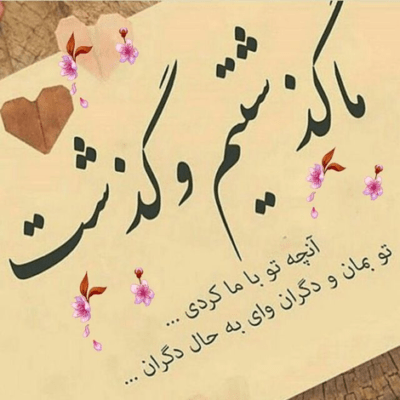 ما گذشتیم و گذشت
آنچه تو با ما کردی ...
تو بمان و دگران وای به حال دگران ...